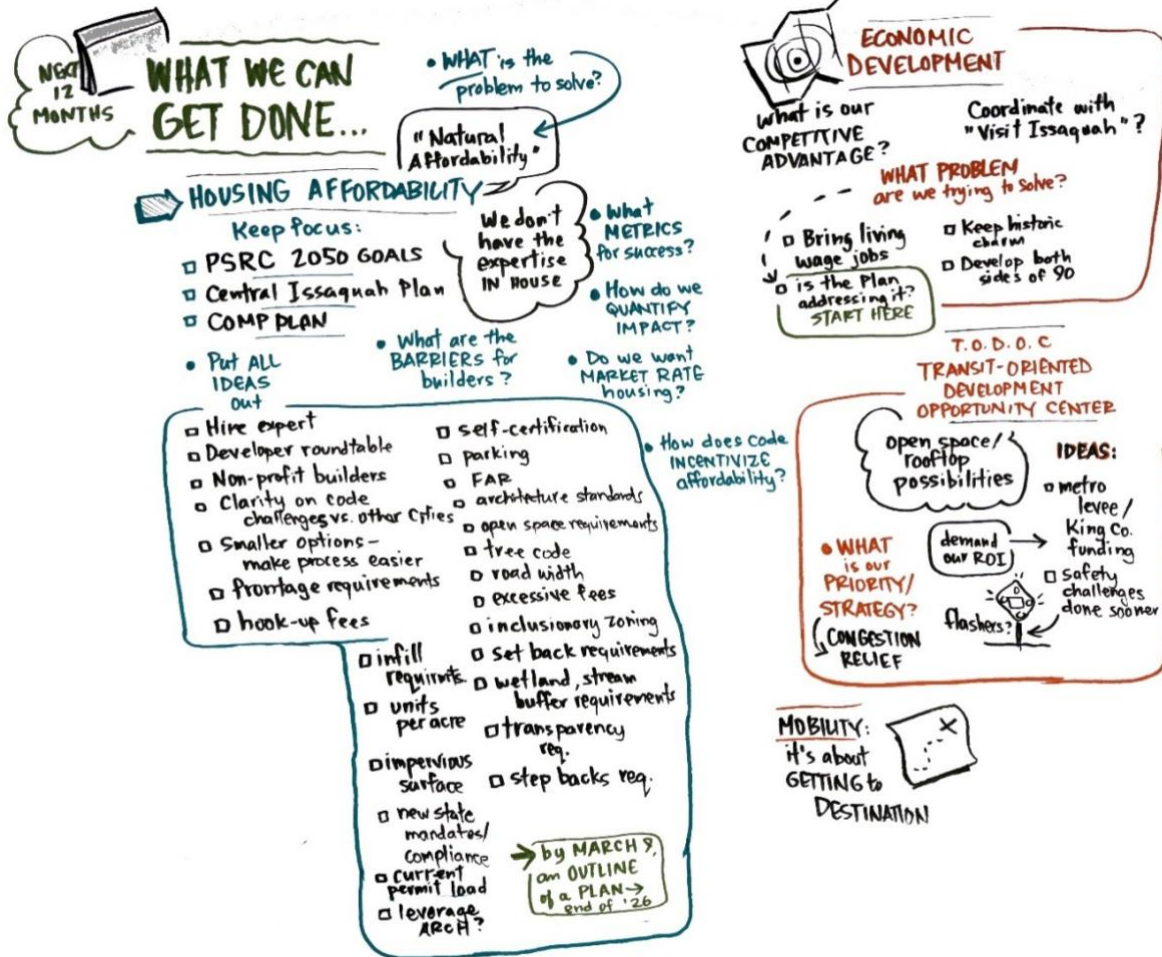 NEXT
12
MONTHS
WHAT WE CAN
GET DONE...
• WHAT is the
problem to solve?
"Natural
Affordability"
HOUSING AFFORDABILITY
Keep focus:
PSRC 2050 GOALS
Central Issaquah Plan
COMP PLAN
We don't
have the
expertise
IN HOUSE
• What
METRICS
for success?
• How do we
QUANTIFY
IMPACT?
• Do we want
MARKET RATE
housing?
• What are the
BARRIERS for
builders?
• Put ALL
IDEAS
out
• How does code
INCENTIVIZE
affordability?
Hire expert
Developer roundtable
Non-profit builders
Clarity on code
challenges vs. other Cities
Smaller options-
make process easier
frontage requirements
hook-up fees
self-certification
parking
FAR
architecture standards
open space requirements
tree code
road width
excessive fees
inclusionary zoning
set back requirements
wetland, stream
buffer requirements
transparency
req.
step backs req.
infill
units
per acre
impervious
surface
new state
mandates/
compliance
current
permit load
leverage
ARCH?
an OUTLINE
of a PLAN→
end of '26
ECONOMIC
DEVELOPMENT
What is our
COMPETITIVE
ADVANTAGE?
Coordinate with
"Visit Issaquah"?
WHAT PROBLEM
are we trying to solve?
Bring living
wage jobs
is the Plan
addressing it?
START HERE
Keep historic
charm
Develop both
sides of 90
T.O.D.O.C
TRANSIT-ORIENTED
DEVELOPMENT
OPPORTUNITY CENTER
open space/
rooftop
possibilities
IDEAS:
metro
levee/
King Co.
funding
safety
challenges
done sooner
demand
our ROI
flashers?
• WHAT
is our
PRIORITY/
STRATEGY?
CONGESTION
RELIEF
MOBILITY:
it's about
GETTING to
DESTINATION